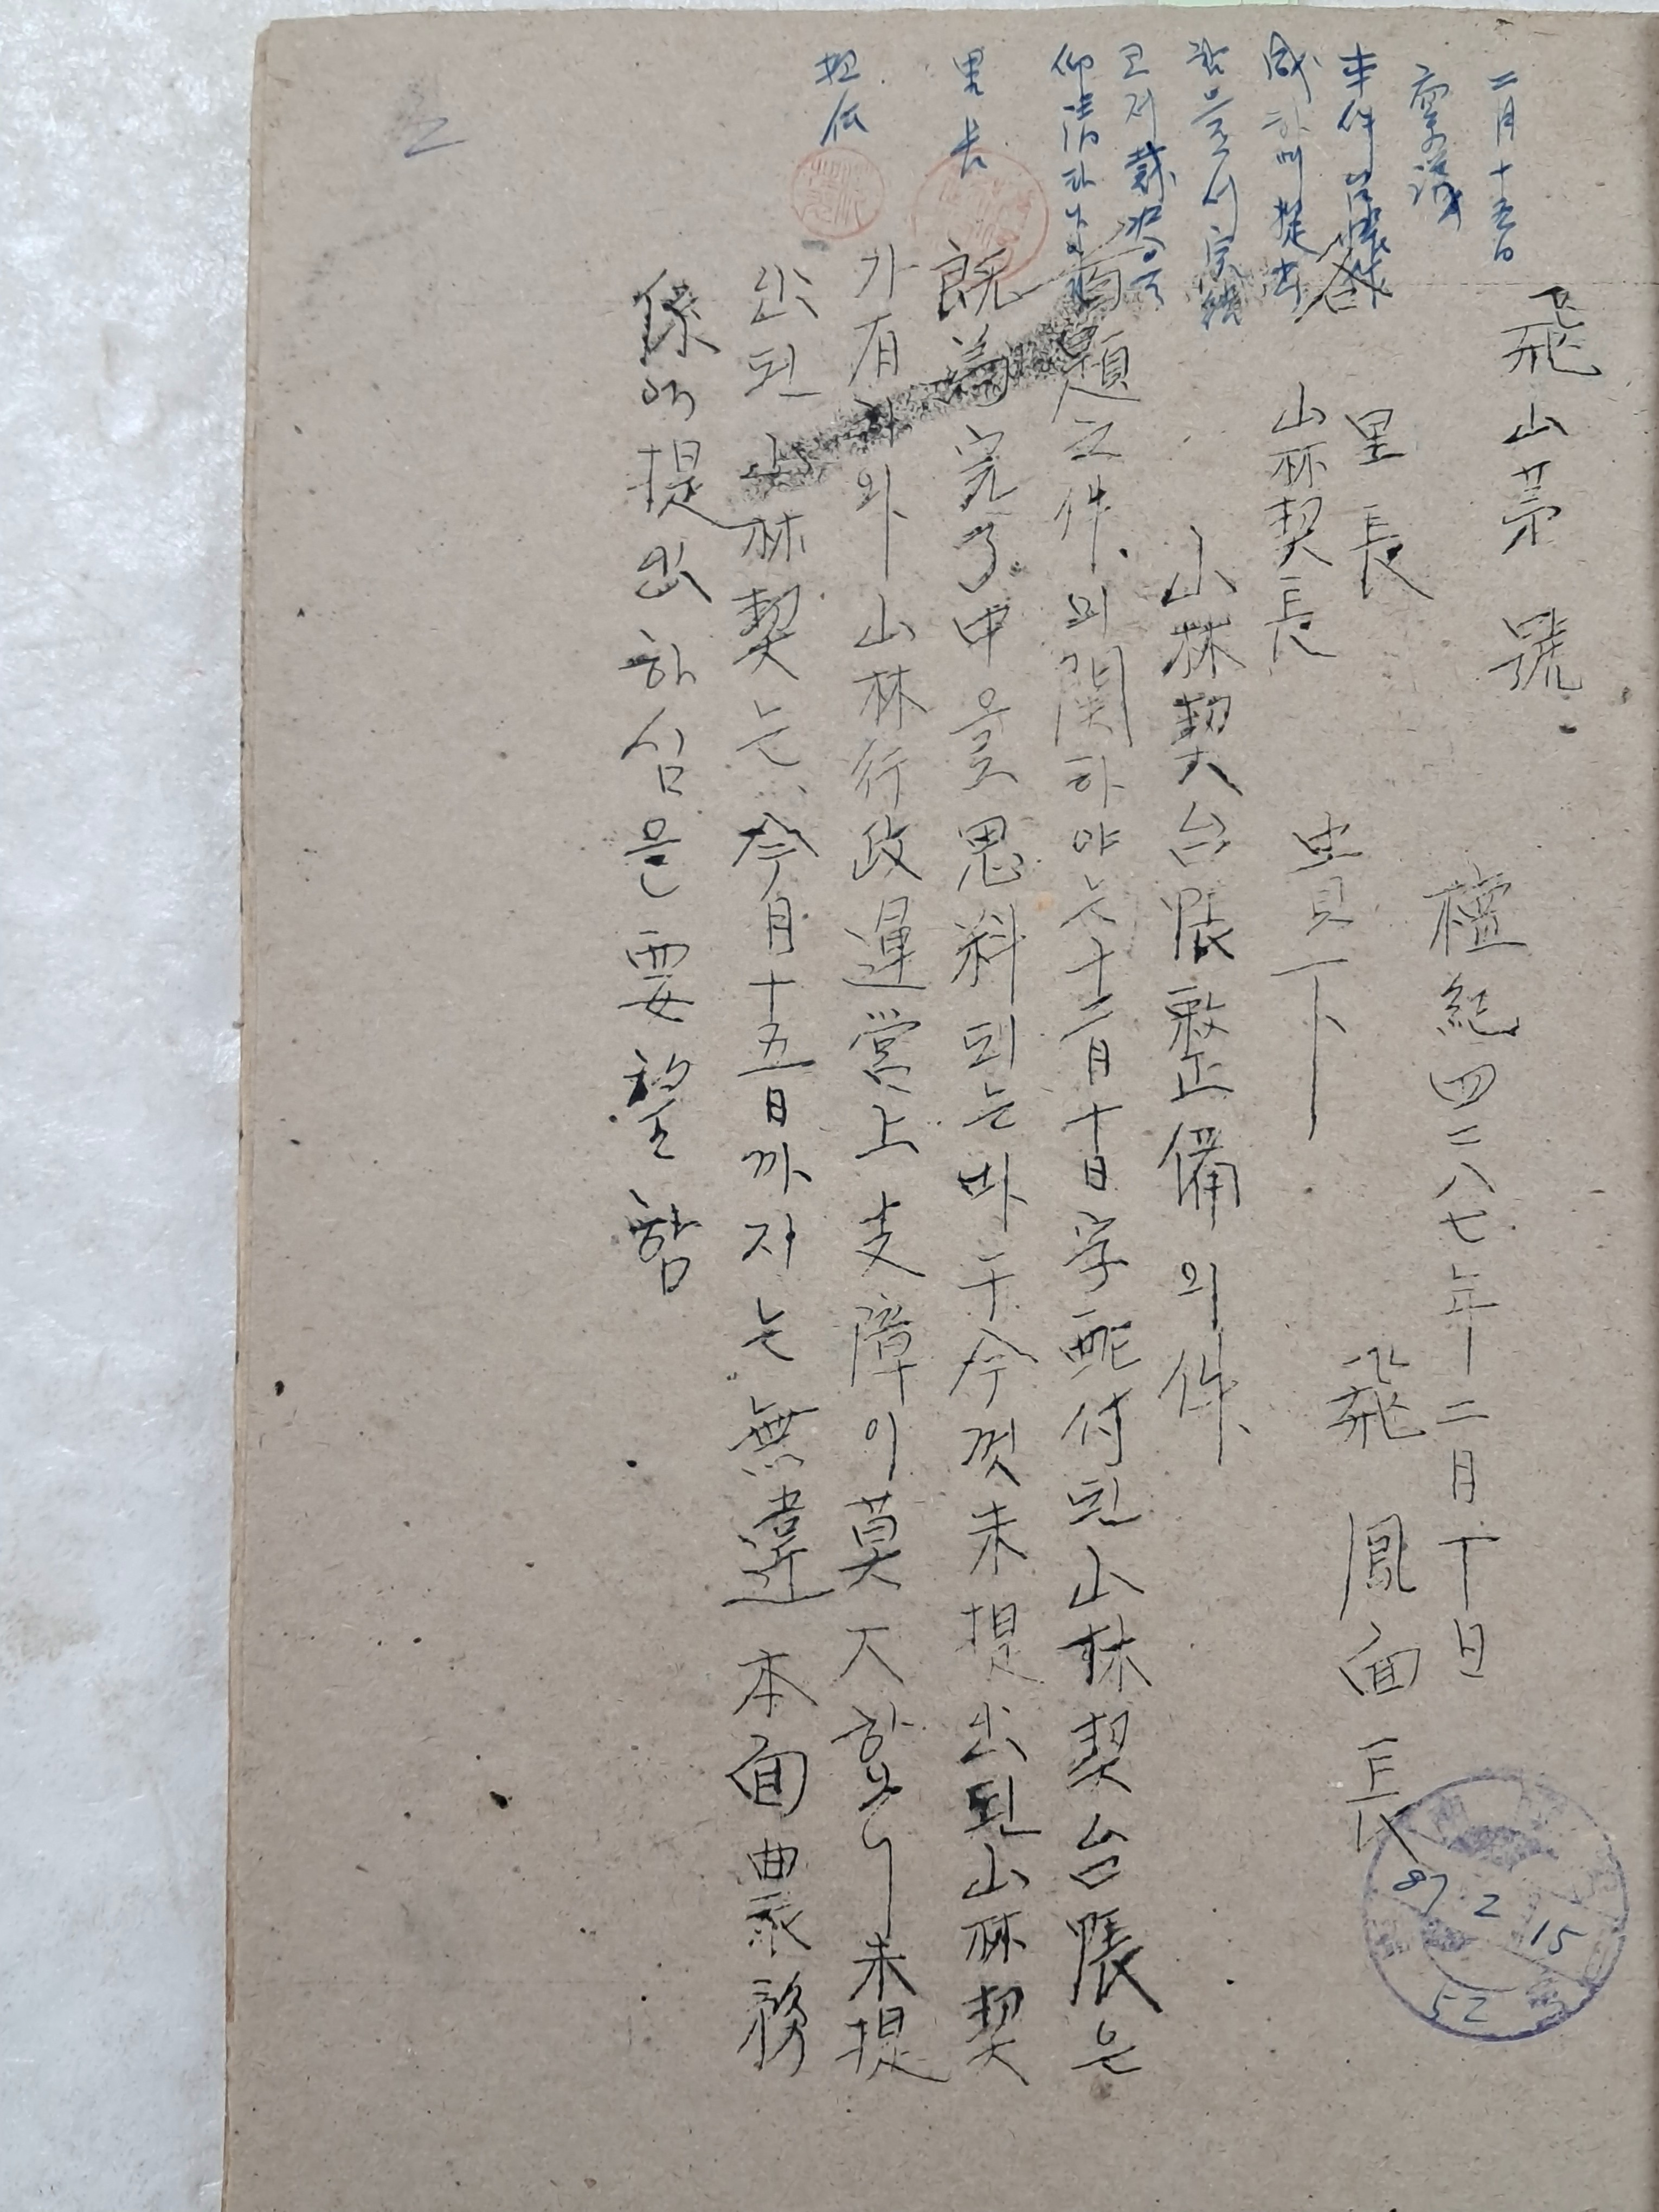 飛山第 號
檀紀四二八七年二月十日
飛鳳面長
各 里長
山林契長 貴下
山林契台帳整備의件
首題之件의関하야는十二月十日字配付된山林契台帳은
旣為完了中으로思料되는바于今껏未提出된山林契
가有하와山林行政運営上支障이莫大함으니未提
出된山林契는今月十五日까지는無違本面農務
係에提出하심을要望함
二月十五日
稟議
本件台帳作
成하여提出
함으로서完結
코저裁決을
仰請하나이
里長
担任
87 2 15
52